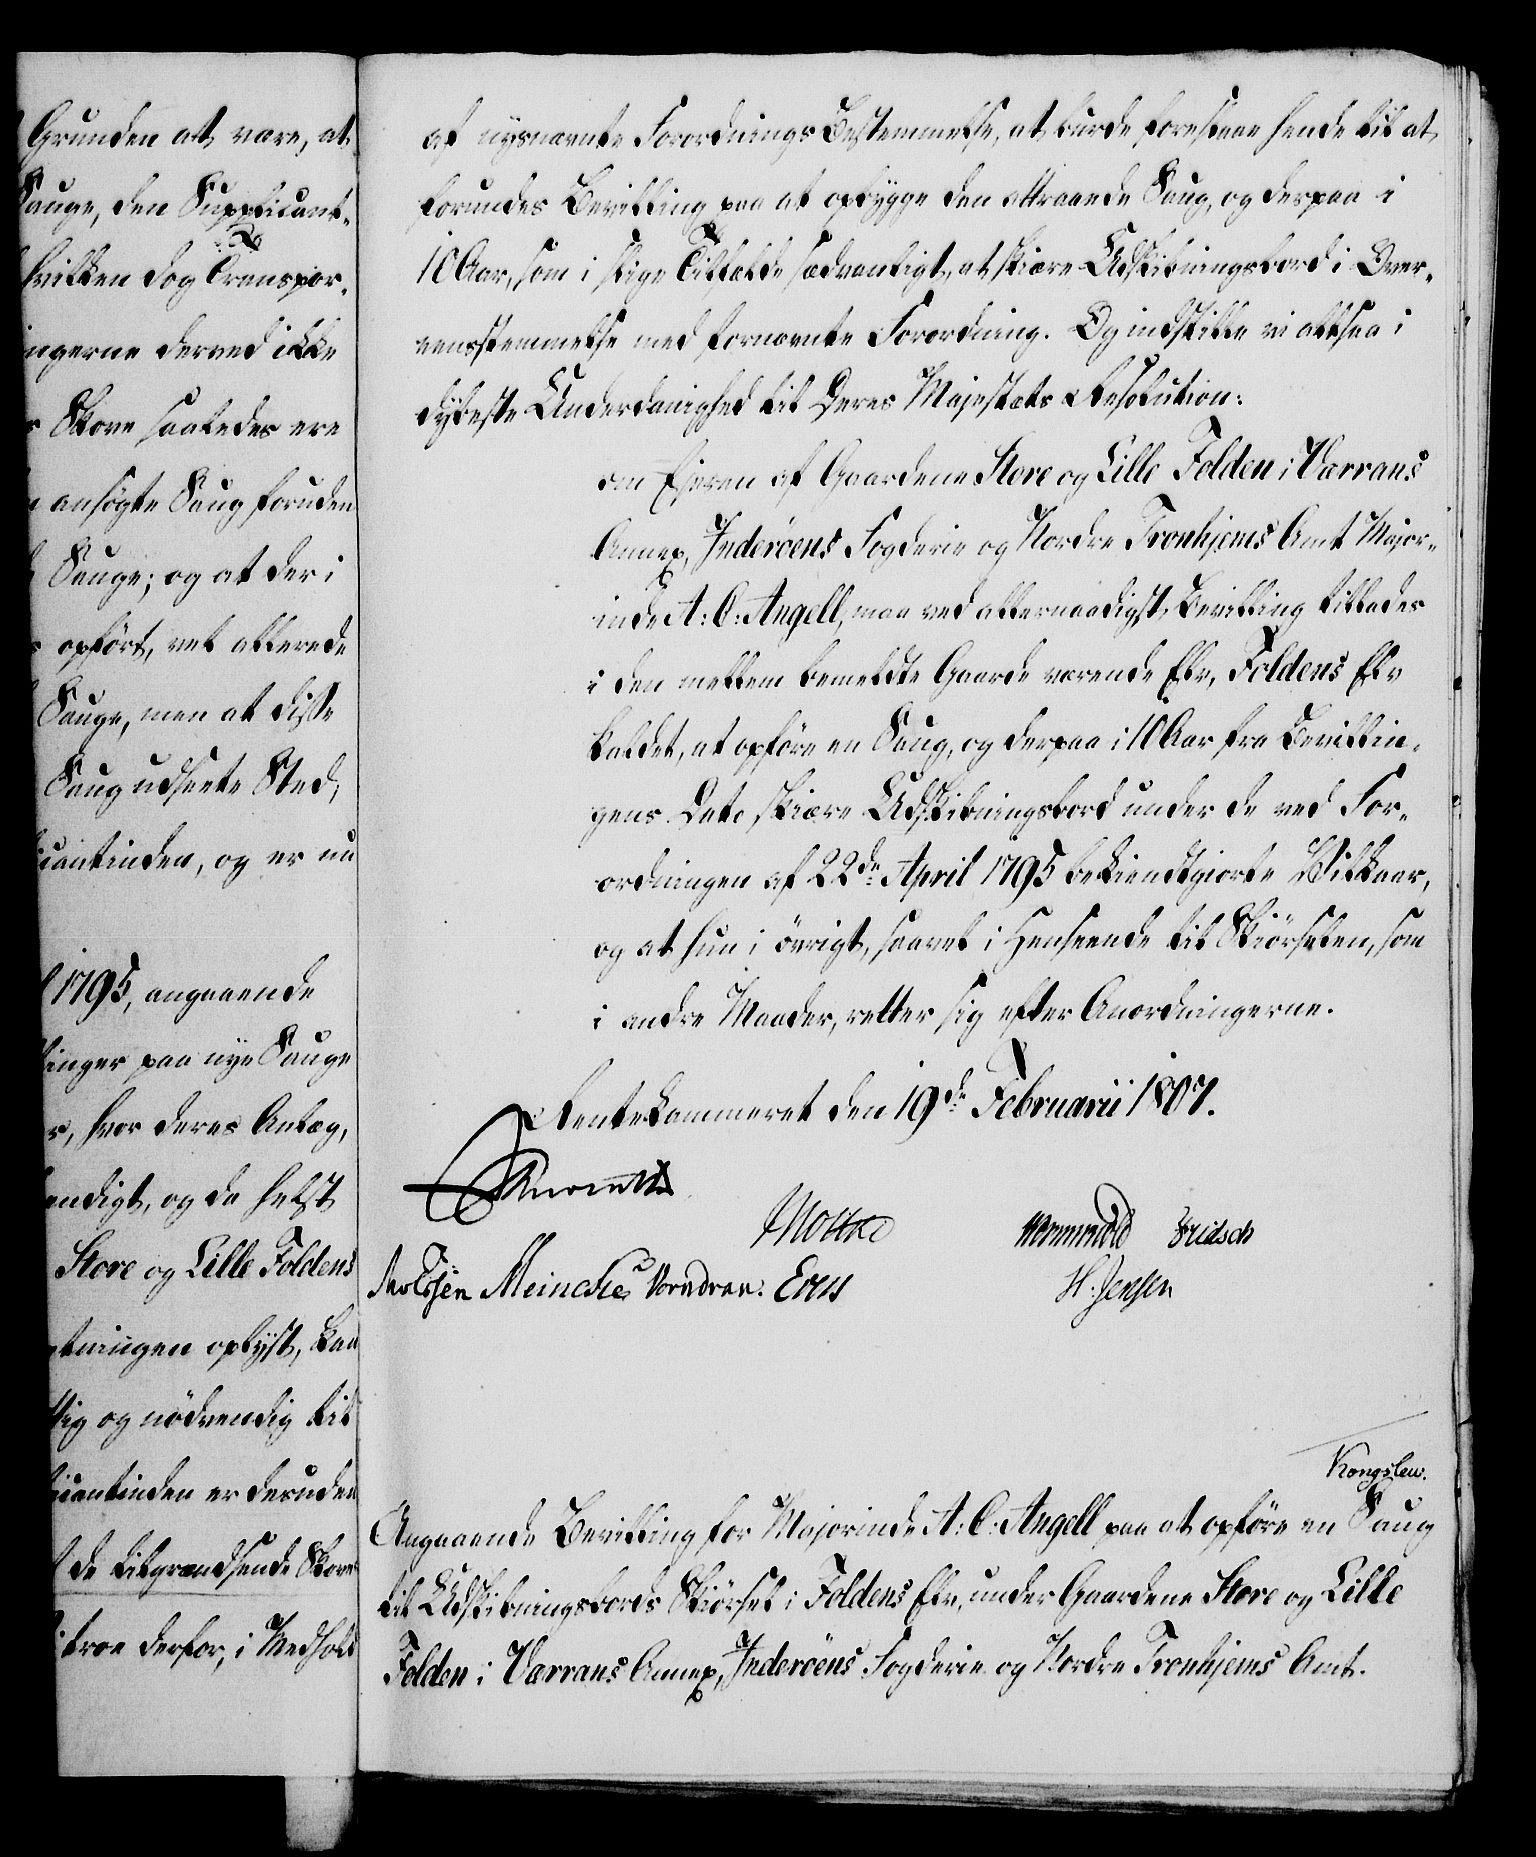 Grunden at være, at
Sauge, den Supplicant-
hvilken dog Transpor-
ingerne derved ikke
Skove saaledes ere
ansøgte Saug foruden
Sauge; og at der i
opført, vel allerede
Sauge, men at disse
Saug udseete Sted,
icantinden, og er nu
1795, angaaende
linger paa nye Sauge
r, hvor deres Anlæg,
endigt, og da helst
Store og Lille Foldens
etningen oplyst, kan
lig og nödvendig til
icantinden er desuden
de tilgrændsende Skove
troe derfor, i Medhold
af nysnævnte Forordnings Bestemmelse, at burde forestaae hende til at
forundes Bevilling paa at opbygge den attraaede Saug, og derpaa i
10 Aar, som i slige Tilfælde sædvanligt, at skiære Udskibningsbord i Over-
eensstemmelse med fornævnte Forordning. Og indstille vi altsaa i
dybeste Underdanighed til Deres Majestæts Resolution:
om Eieren af Gaardene Store og Lille Folden i Værrans
Annex, Inderöens Fogderie og Nordre Tronhjems Amt Major-
inde A: C: Angell, maa ved allernaadigst Bevilling tillades
i den mellem bemeldte Gaarde værende Elv, Foldens Elv
kaldet, at opföre en Saug, og derpaa i 10 Aar fra Bevillin-
gens Dato skiære Udskibningsbord under de ved For-
ordningen af 22de April 1795 bekiendtgiorte Vilkaar,
og at hun i övrigt, saavel i Henseende til Skiörselen, som
i andre Maader, retter sig efter Anordningerne.
Rentekammeret den 19de Februarii 1807.
Moltke Wormskiold Fridsch
Meincke Vorndran. H. Jensen
Kongslew.
Angaaende Bevilling for Majorinde A: C: Angell paa at opföre en Saug
til Udskibningsbords Skiörsel i Foldens Elv, under Gaardene Store og Lille
Folden i Værrans Annex, Inderöens Fogderie og Nordre Tronhjems Amt.